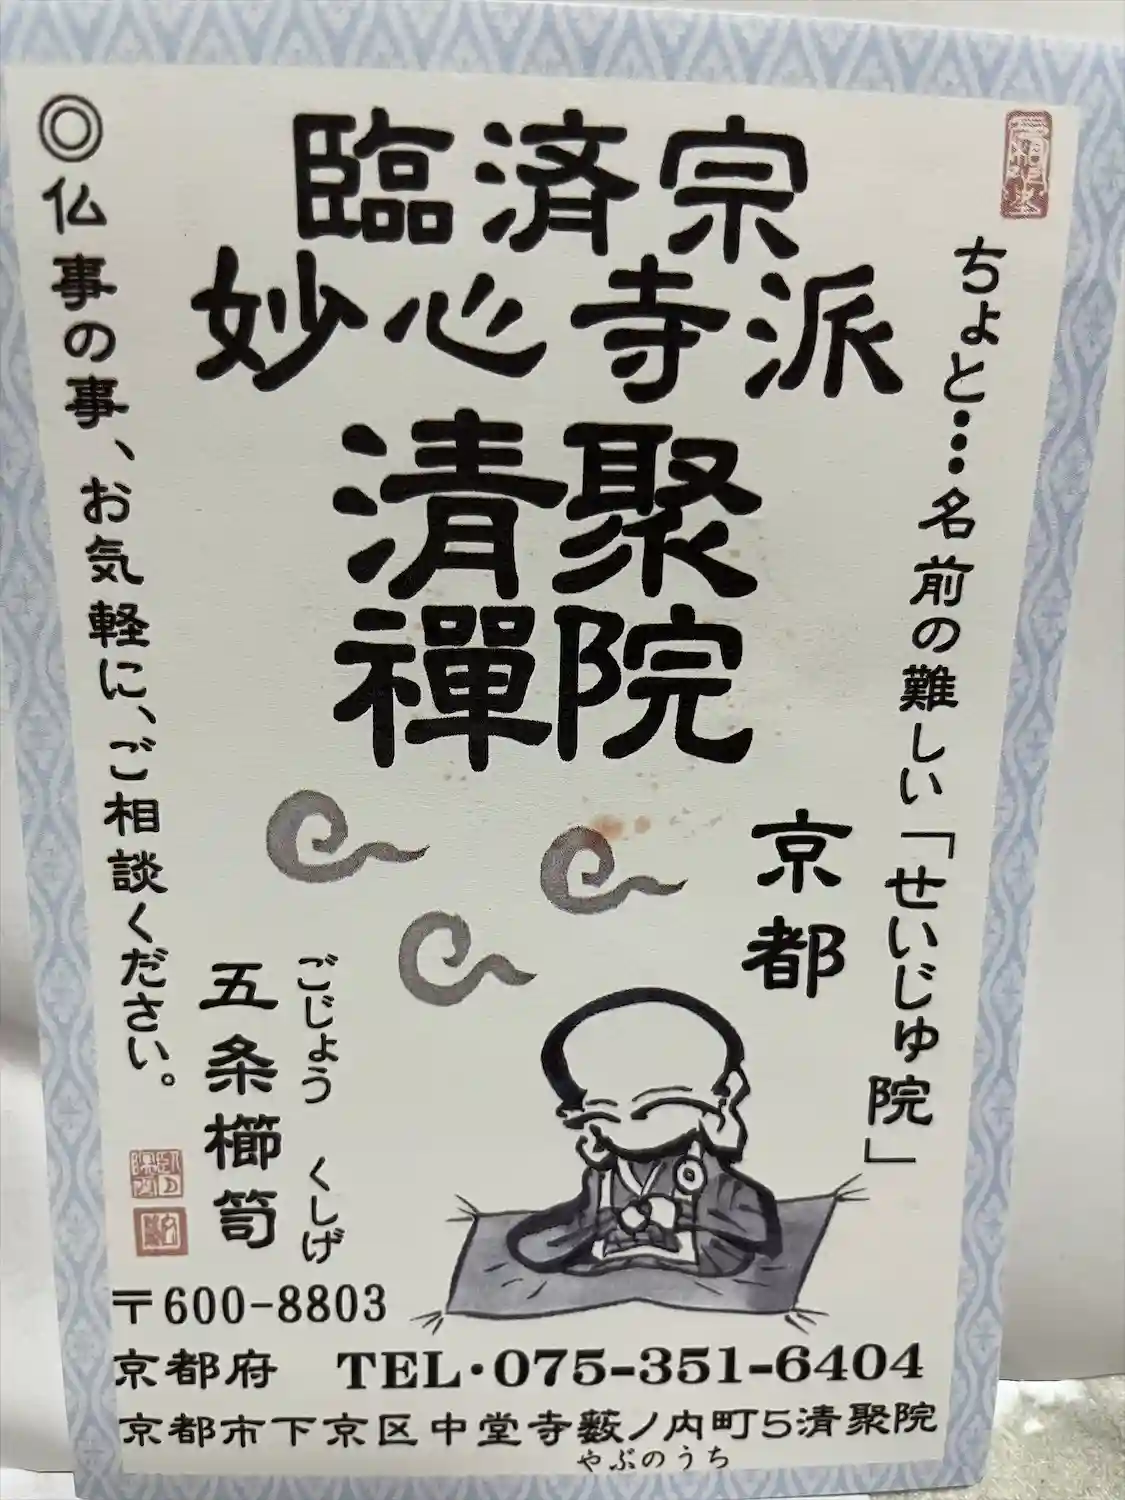 臨済宗
妙心寺派
清聚
禪院
ちょと…名前の難しい「せいじゅ院」
京都
ごじょう くしげ
五条櫛笥
◎仏事の事、お気軽に、ご相談ください。
〒600-8803
京都府 TEL・075-351-6404
京都市下京区中堂寺藪ノ内町5清聚院
やぶのうち